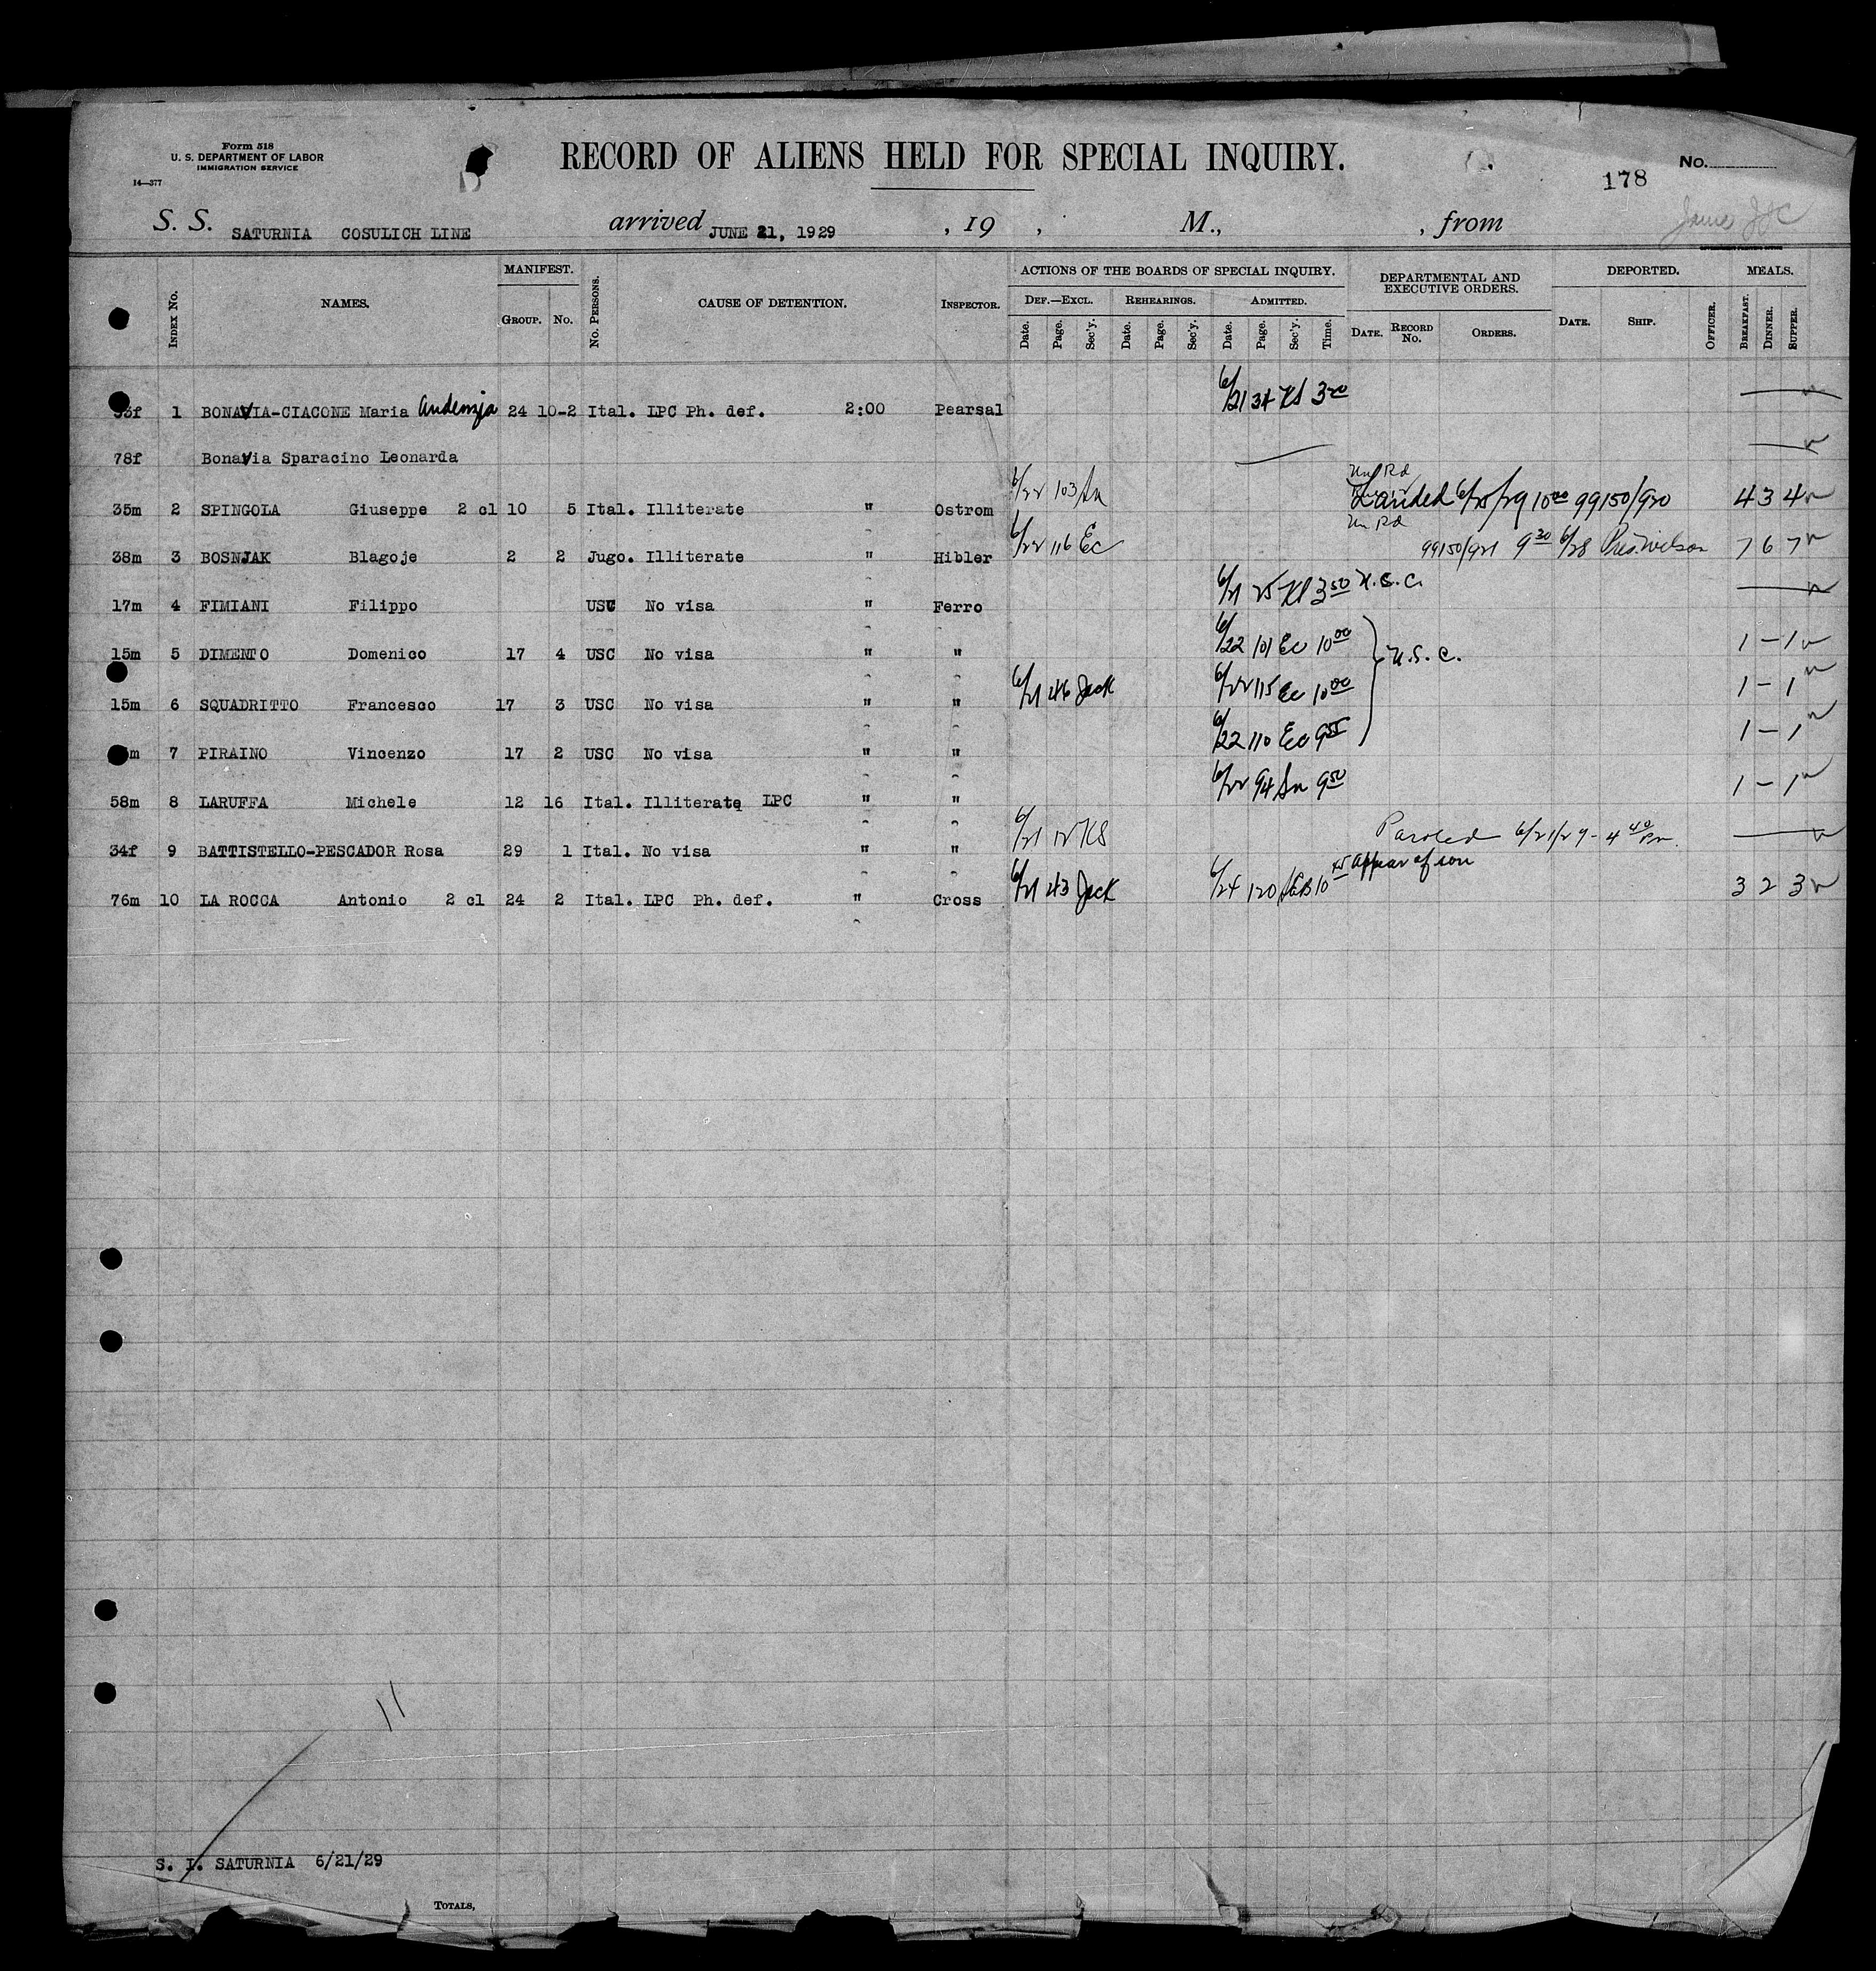 Form 518
U. S. DEPARTMENT OF LABOR
IMMIGRATION SERVICE
14—377
RECORD OF ALIENS HELD FOR SPECIAL INQUIRY.
No.
178
S. S. SATURNIA COSULICH LINE arrived JUNE 21, 1929 , 19 , M., , from
Index No. NAMES. MANIFEST. Group. No. No. Persons. CAUSE OF DETENTION. Inspector. ACTIONS OF THE BOARDS OF SPECIAL INQUIRY. DEPARTMENTAL AND EXECUTIVE ORDERS. DEPORTED. MEALS.
Def.—Excl. Rehearings. Admitted.
Date. Page. Sec'y. Date. Page. Sec'y. Date. Page. Sec'y. Time. Date. Record No. Orders. Date. Ship. Officer. Breakfast. Dinner. Supper.
1 BONAVIA-CIACONE Maria 24 10-2 Ital. LPC Ph. def. 2:00 Pearsal 6/21 34 KS 3
78f Bonavia Sparacino Leonarda
35m 2 SPINGOLA Giuseppe 2 cl 10 5 Ital. Illiterate " Ostrom 6/22 103 Sn Landed 6/25/29 10 00 99150/920 4 3 4
38m 3 BOSNJAK Blagoje 2 2 Jugo. Illiterate " Hibler 6/22 116 Ec 99150/921 9 30 6/28 Pres Wilson 7 6 7
17m 4 FIMIANI Filippo USC No visa " Ferro 6/21 25 KS 3 50 U.S.C.
15m 5 DIMENTO Domenico 17 4 USC No visa " " 6/22 101 Ec 10 00 U.S.C. 1 - 1
15m 6 SQUADRITTO Francesco 17 3 USC No visa " " 6/21 46 Jack 6/22 115 Ec 10 00 1 - 1
m 7 PIRAINO Vincenzo 17 2 USC No visa " " 6/22 110 Ec 9 55 1 - 1
58m 8 LARUFFA Michele 12 16 Ital. Illiterate LPC " " 6/22 94 Sn 9 50 1 - 1
34f 9 BATTISTELLO-PESCADOR Rosa 29 1 Ital. No visa " " 6/21 12 KS Paroled 6/21/29 - 4 40 Pm.
76m 10 LA ROCCA Antonio 2 cl 24 2 Ital. LPC Ph. def. " Cross 6/21 43 Jack 6/24 120 10 45 Appear of son 3 2 3
11
S. I. SATURNIA 6/21/29
Totals,